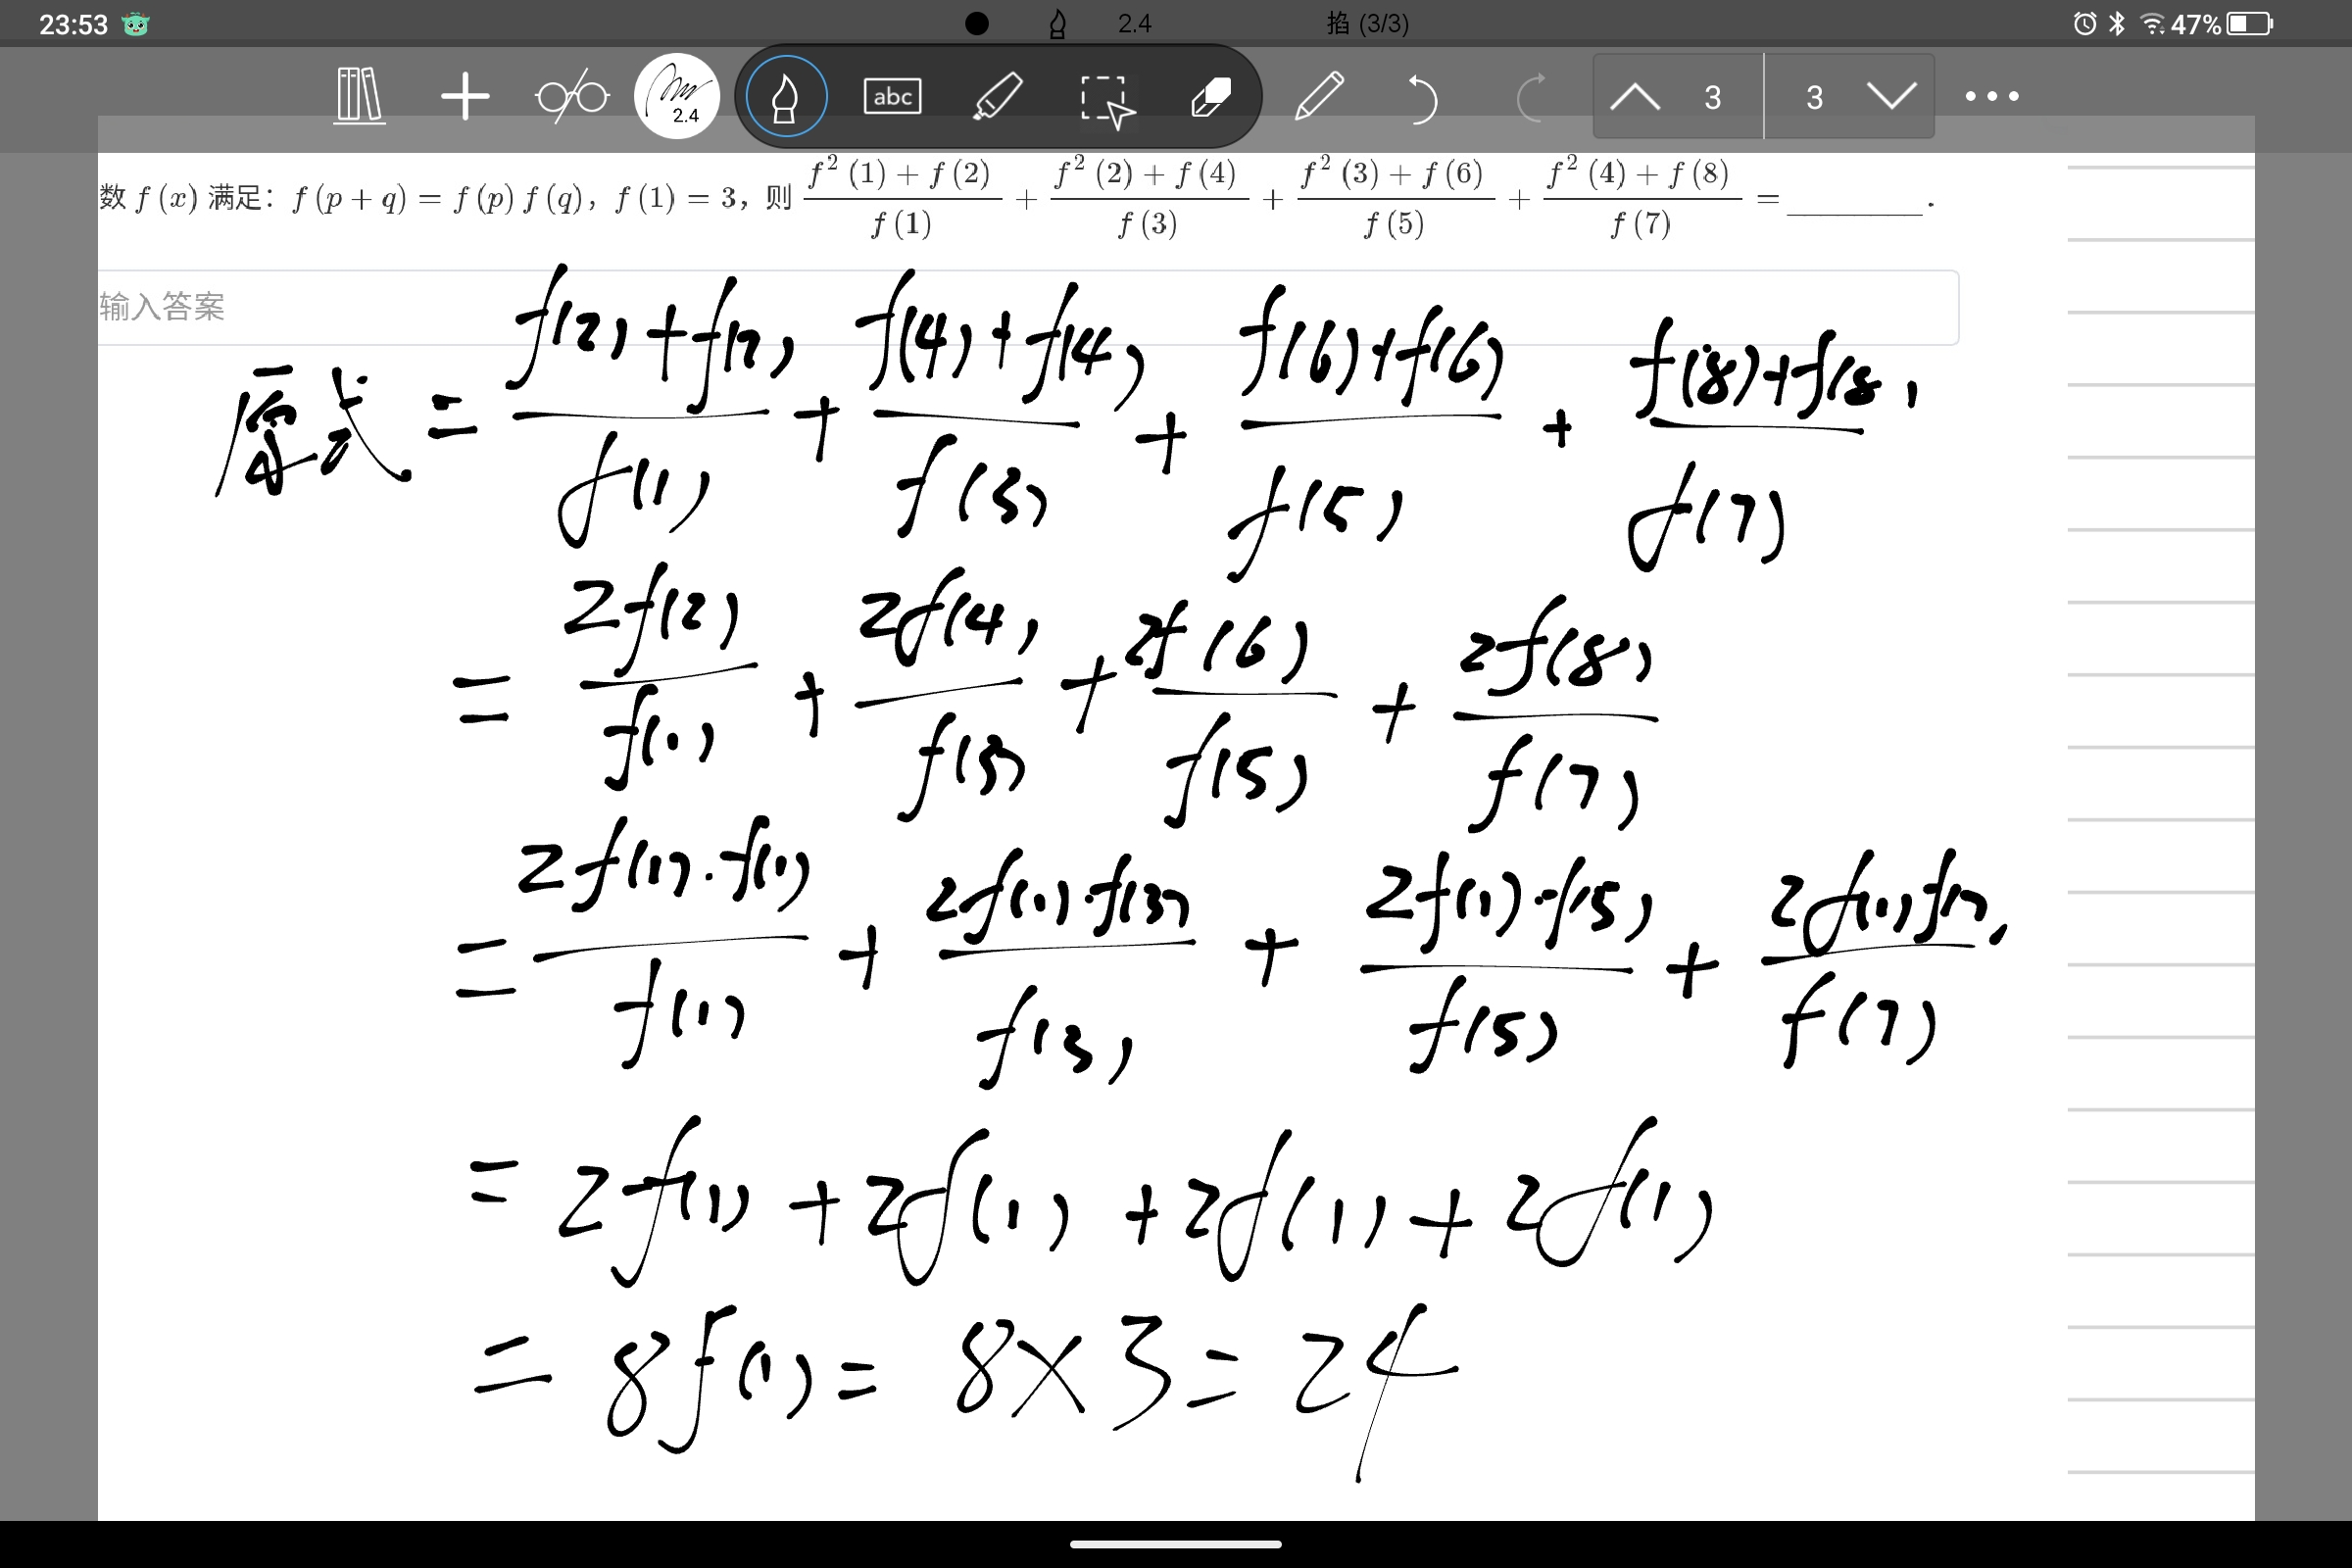 23:53 2.4 掐 (3/3) 47%
2.4 abc 3 3
数 f (x) 满足: f (p + q) = f (p) f (q), f (1) = 3, 则 \frac{f^2 (1) + f (2)}{f (1)} + \frac{f^2 (2) + f (4)}{f (3)} + \frac{f^2 (3) + f (6)}{f (5)} + \frac{f^2 (4) + f (8)}{f (7)} = ________ .
输入答案
原式 = \frac{f(2) + f(2)}{f(1)} + \frac{f(4) + f(4)}{f(3)} + \frac{f(6) + f(6)}{f(5)} + \frac{f(8) + f(8)}{f(7)}
= \frac{2f(2)}{f(1)} + \frac{2f(4)}{f(3)} + \frac{2f(6)}{f(5)} + \frac{2f(8)}{f(7)}
= \frac{2f(1)·f(1)}{f(1)} + \frac{2f(1)·f(3)}{f(3)} + \frac{2f(1)·f(5)}{f(5)} + \frac{2f(1)f(7)}{f(7)}
= 2f(1) + 2f(1) + 2f(1) + 2f(1)
= 8f(1) = 8 × 3 = 24